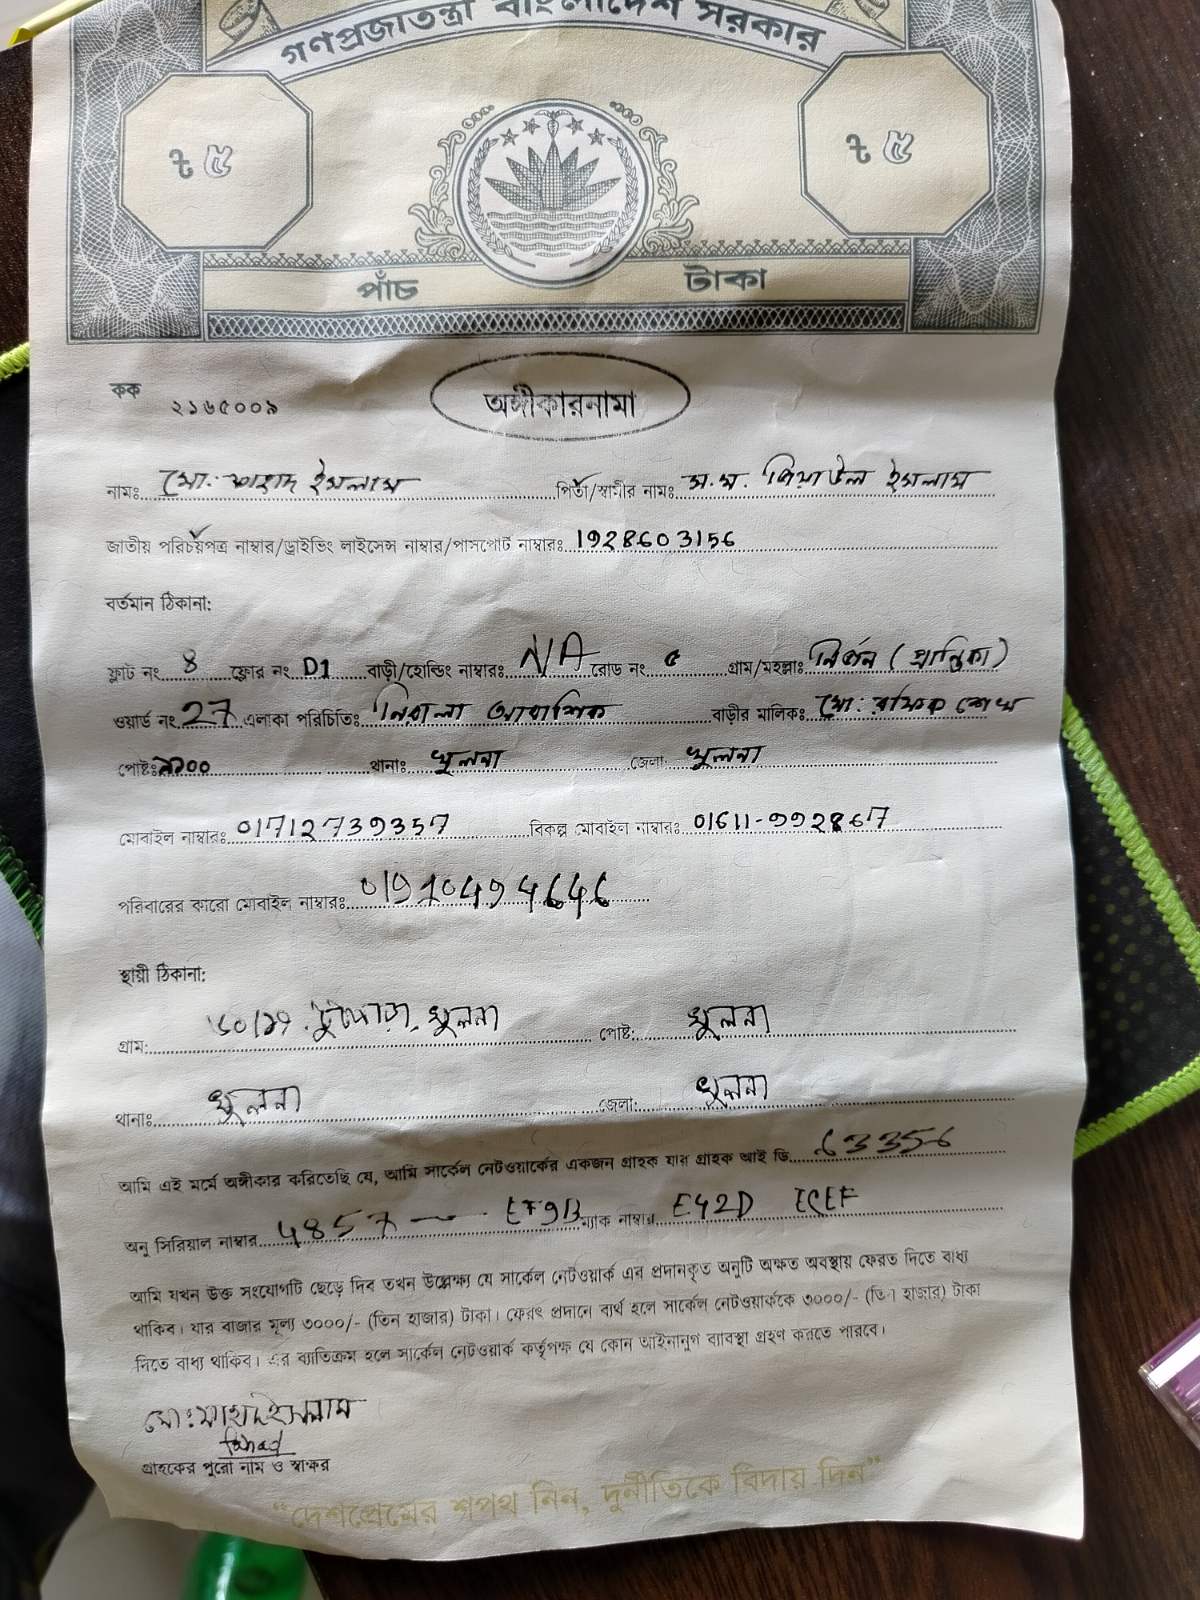 গণপ্রজাতন্ত্রী বাংলাদেশ সরকার
৳ ৫ ৳ ৫
পাঁচ টাকা
কক ২১৬৫০০৯
অঙ্গীকারনামা
নামঃ মো: ফাহাদ ইসলাম পিতা/স্বামীর নামঃ স.ম. জিয়াউল ইসলাম
জাতীয় পরিচয়পত্র নাম্বার/ড্রাইভিং লাইসেন্স নাম্বার/পাসপোর্ট নাম্বারঃ 1928603156
বর্তমান ঠিকানা:
ফ্লাট নং 8 ফ্লোর নং D1 বাড়ী/হোল্ডিং নাম্বারঃ N/A রোড নং ৫ গ্রাম/মহল্লাঃ নির্জন (প্রান্তিকা)
ওয়ার্ড নং 27 এলাকা পরিচিতিঃ নিরালা আবাসিক বাড়ীর মালিকঃ মো: রফিক শেখ
পোষ্টঃ ৯১০০ থানাঃ খুলনা জেলা: খুলনা
মোবাইল নাম্বারঃ 01712739357 বিকল্প মোবাইল নাম্বারঃ 01611-992867
পরিবারের কারো মোবাইল নাম্বারঃ 01910494646
স্থায়ী ঠিকানা:
গ্রাম: টুটপাড়া, খুলনা পোষ্ট: খুলনা
থানাঃ খুলনা জেলা: খুলনা
আমি এই মর্মে অঙ্গীকার করিতেছি যে, আমি সার্কেল নেটওয়ার্কের একজন গ্রাহক যার গ্রাহক আই ডি 63356
অনু সিরিয়াল নাম্বার 4857 — EF9B ম্যাক নাম্বার E42D ECEF
আমি যখন উক্ত সংযোগটি ছেড়ে দিব তখন উল্লেক্ষ্য যে সার্কেল নেটওয়ার্ক এর প্রদানকৃত অনুটি অক্ষত অবস্থায় ফেরত দিতে বাধ্য
থাকিব। যার বাজার মূল্য ৩০০০/- (তিন হাজার) টাকা। ফেরৎ প্রদানে ব্যর্থ হলে সার্কেল নেটওয়ার্ককে ৩০০০/- (তিন হাজার) টাকা
দিতে বাধ্য থাকিব। এর ব্যতিক্রম হলে সার্কেল নেটওয়ার্ক কর্তৃপক্ষ যে কোন আইনানুগ ব্যাবস্থা গ্রহণ করতে পারবে।
মো: ফাহাদ ইসলাম
fahad
গ্রাহকের পুরো নাম ও স্বাক্ষর
“দেশপ্রেমের শপথ নিন, দুর্নীতিকে বিদায় দিন”